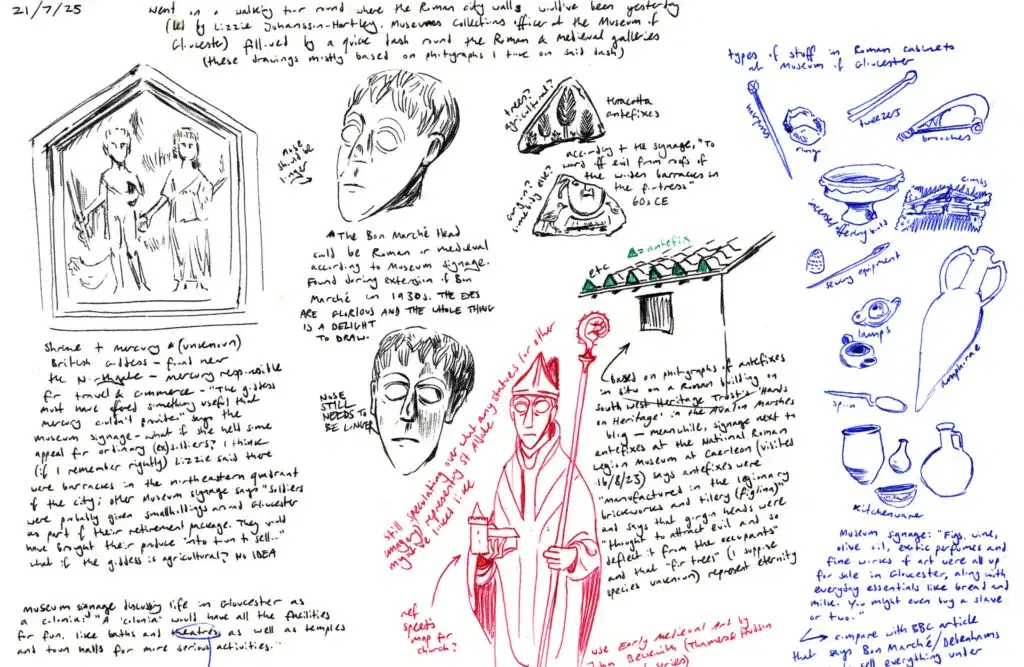 21/7/25
Went on a walking tour round where the Roman city walls would've been yesterday
(led by Lizzie Johansson-Hartley, Museums Collections Officer at the Museum of
Gloucester) followed by a quick dash round the Roman & medieval galleries
(these drawings mostly based on photographs I took on said dash)
Shrine to mercury & (unknown)
British goddess - found near
the Northgate - mercury responsible
for travel & commerce - "The goddess
must have offered something useful that
mercury couldn't provide" says the
museum signage - what if she held some
appeal for ordinary (ex)soldiers? I think
(if I remember rightly) Lizzie said there
were barracks in the northeastern quadrant
of the city; other museum signage says "Soldiers
were probably given smallholdings around Gloucester
as part of their retirement package. They would
have brought their produce into town to sell..."
what if the goddess is agricultural? NO IDEA
museum signage discussing life in Gloucester as
a colonia: "A 'colonia' would have all the facilities
for fun, like baths and theatres as well as temples
and town halls for more serious activities."
nose should be longer
The Bon Marché Head
could be Roman or medieval
according to Museum signage.
Found during extension of Bon
Marché in 1930s. THE EYES
ARE GLORIOUS AND THE WHOLE THING
IS A DELIGHT
TO DRAW.
NOSE
STILL
NEEDS TO
BE LONGER
trees?
agricultural?
terracotta
antefixes
according to the signage, "To
ward off evil from roofs of
the wooden barracks in
the fortress"
60s CE
etc
= antefix
based on photographs of antefixes
in situ on a Roman building on
South West Heritage Trust's 'Hands
on Heritage' in the Avalon Marshes
blog - meanwhile, signage next to
antefixes at the National Roman
Legion Museum at Caerleon (visited
16/8/23) says antefixes were
"manufactured in the legionary
brickworks and tilery (figlina)"
and says that gorgon heads were
"thought to attract evil and so
deflect it from the occupants"
and that "fir trees" (I suppose
species unknown) represent eternity
still speculating over what any statues for other
imagery representing St
might've looked like
ref
speeds
map for
church?
use Early Medieval Art by
John Beckwith (Thames & Hudson
series)
types of stuff in Roman cabinets
at Museum of Gloucester
hairpins
rings
tweezers
brooches
incense offering bowl
combs
sewing equipment
lamps
amphorae
spoon
Kitchenware
Museum signage: "Figs, wine,
olive oil, exotic perfumes and
fine works of art were all up
for sale in Gloucester, along with
everyday essentials like bread and
milk. You might even buy a slave
or two."
compare with BBC article
that says Bon Marché/Debenhams
sell everything under